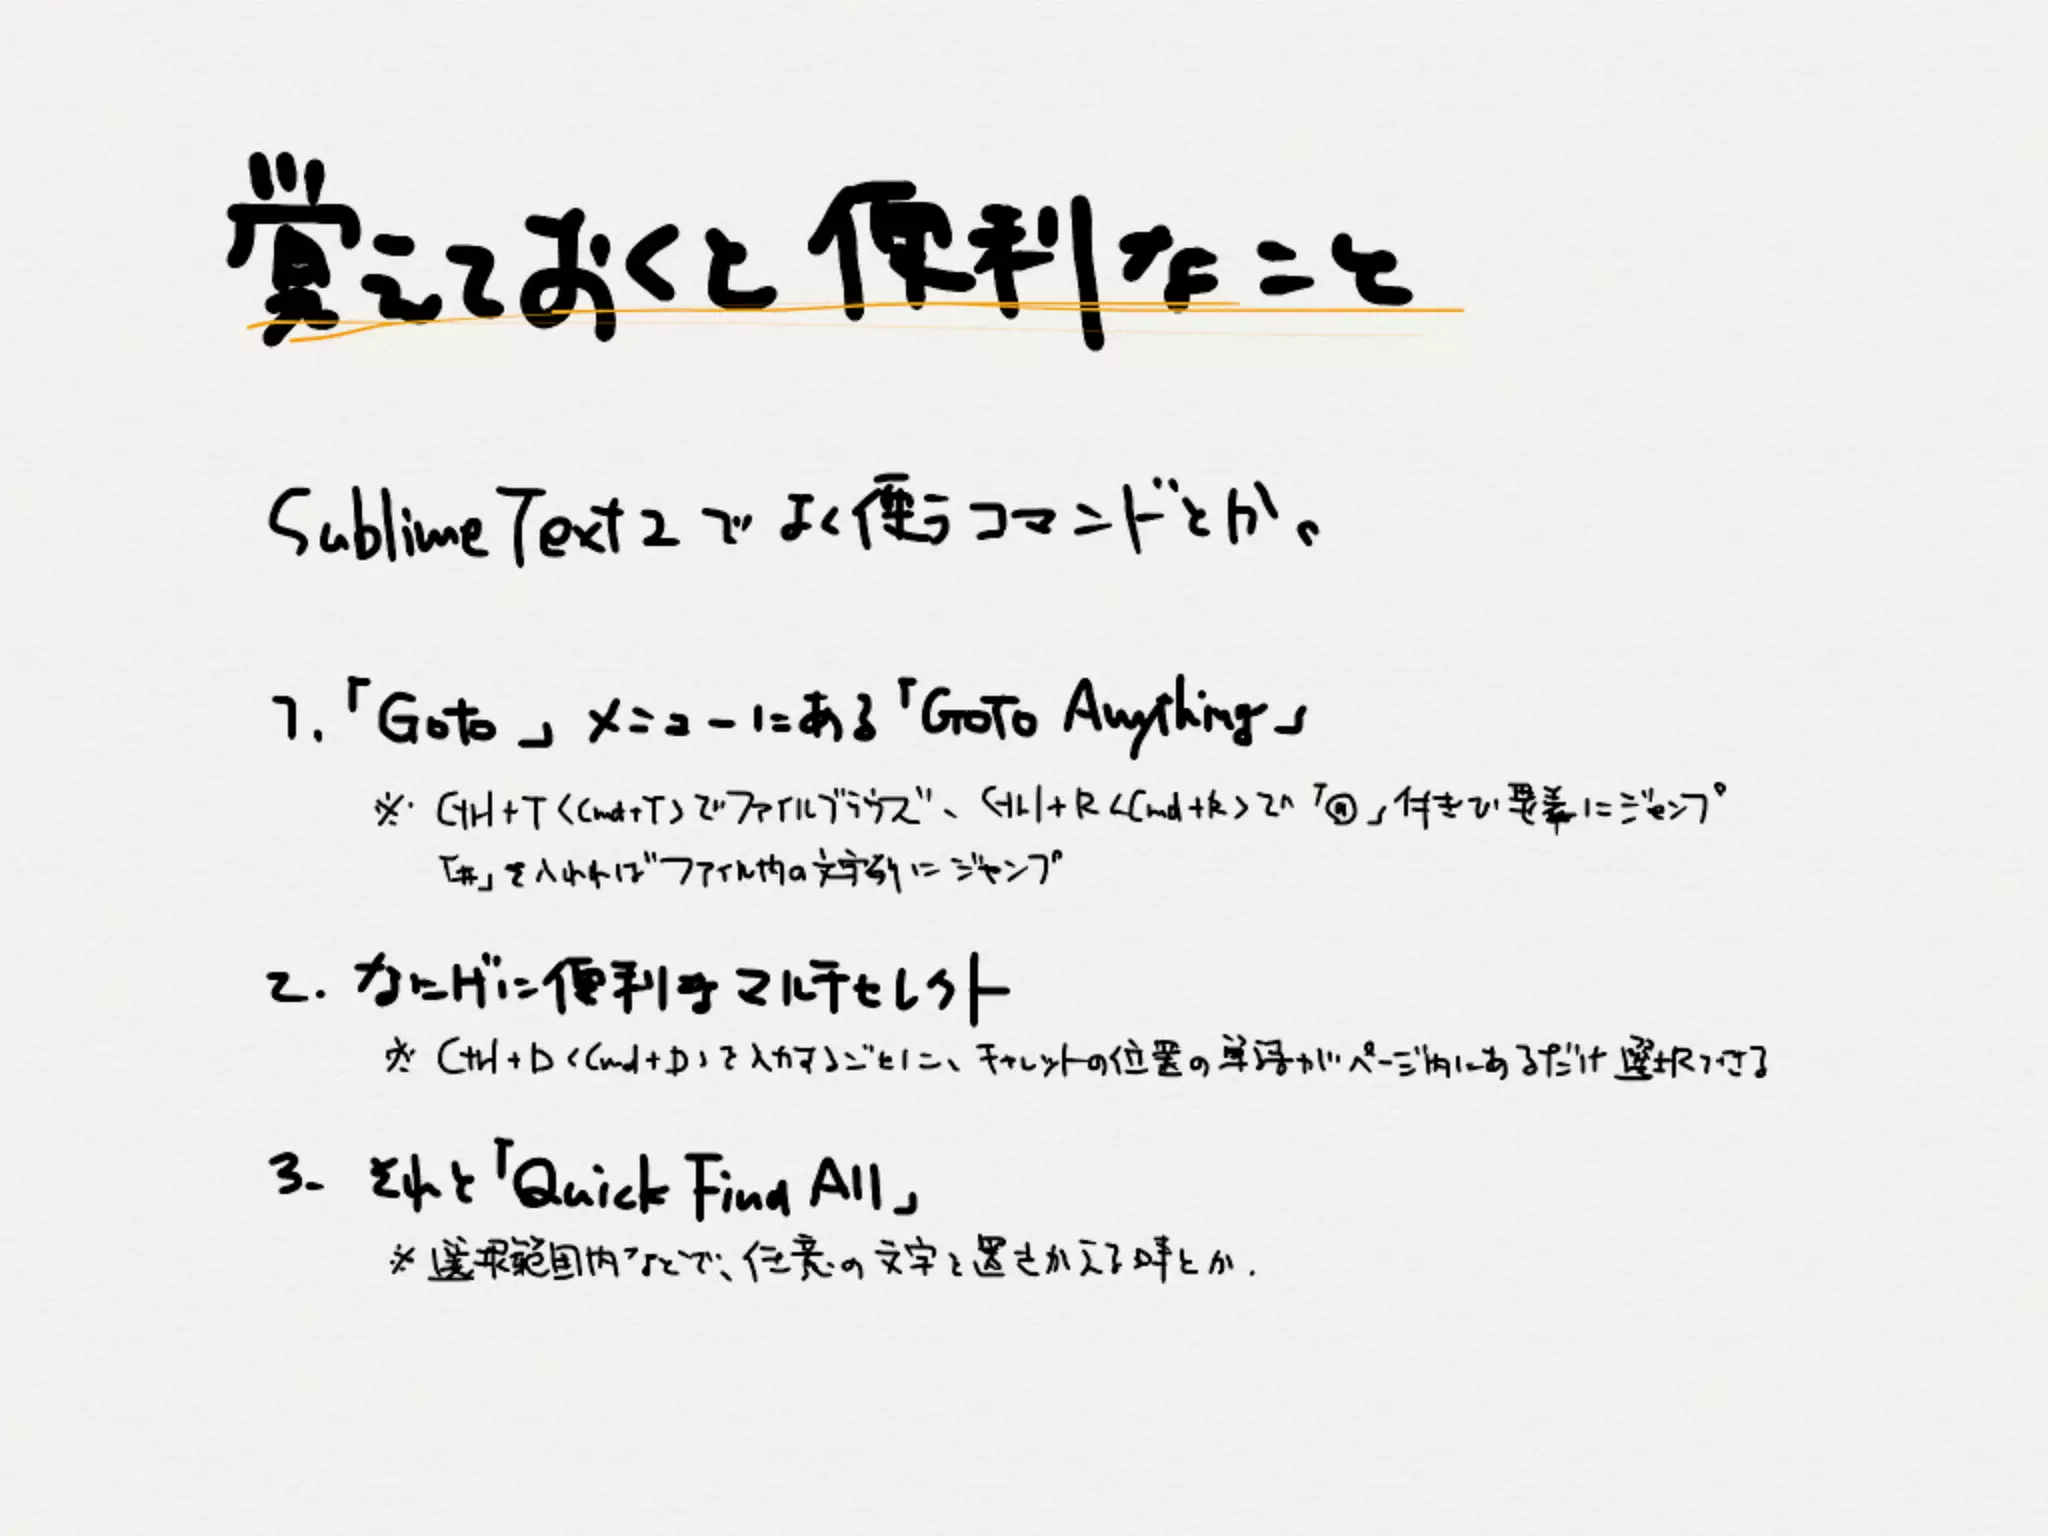 覚えておくと便利なこと
Sublime Text 2 でよく使うコマンドとか。
1.「Goto」メニューにある「GoTo Anything」
※ Ctrl+T <Cmd+T> でファイルブラウズ、Ctrl+R <Cmd+R> で「@」付きで要素にジャンプ
「#」を入れればファイル内の文字列にジャンプ
2. なにげに便利なマルチセレクト
※ Ctrl+D <Cmd+D> を入力するごとに、キャレットの位置の単語がページ内にあるだけ選択できる
3. それと「Quick Find All」
※ 選択範囲内などで、任意の文字と置きかえる時とか.